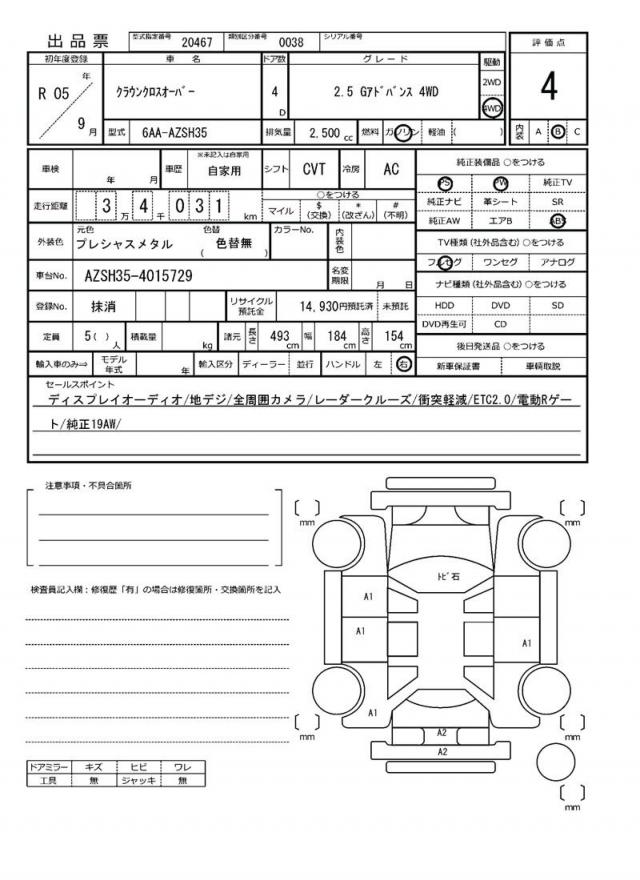 出品票 型式指定番号 20467 類別区分番号 0038 シリアル番号
評価点
4
初年度登録 車名 ドア数 グレード 駆動
R 05 年 9 月
クラウンクロスオーバー 4 D 2.5 Gアドバンス 4WD 2WD
4WD
型式 6AA-AZSH35 排気量 2,500 cc 燃料 ガソリン 軽油 ( )
内装 A B C
車検 年 月 車歴 ※未記入は自家用 自家用 シフト CVT 冷房 AC
走行距離 3 万 4 千 0 3 1 km
○をつける
マイル $ (交換) * (改ざん) # (不明)
外装色 元色 プレシャスメタル 色替 ( 色替無 ) カラーNo. 内装色
車台No. AZSH35-4015729 名変期限 月 日
登録No. 抹消 リサイクル預託金 14,930円預託済 未預託
定員 5( ) 人 積載量 kg 諸元 長さ 493 cm 幅 184 cm 高さ 154 cm
輸入車のみ⇒ モデル年式 年 輸入区分 ディーラー 並行 ハンドル 左 右
純正装備品 ○をつける
PS PW 純正TV
純正ナビ 革シート SR
純正AW エアB ABS
TV種類 (社外品含む) ○をつける
フルセグ ワンセグ アナログ
ナビ種類 (社外品含む) ○をつける
HDD DVD SD
DVD再生可 CD
後日発送品 ○をつける
新車保証書 車輌取説
セールスポイント
ディスプレイオーディオ/地デジ/全周囲カメラ/レーダークルーズ/衝突軽減/ETC2.0/電動Rゲー
ト/純正19AW/
注意事項・不具合箇所
検査員記入欄：修復歴「有」の場合は修復箇所・交換箇所を記入
[ ] mm
[ ] mm
ﾄﾋﾞ石
A1
A1
A1
A1
A2
A2
[ ] mm
[ ] mm
[ ] mm
ドアミラー キズ ヒビ ワレ
工具 無 ジャッキ 無